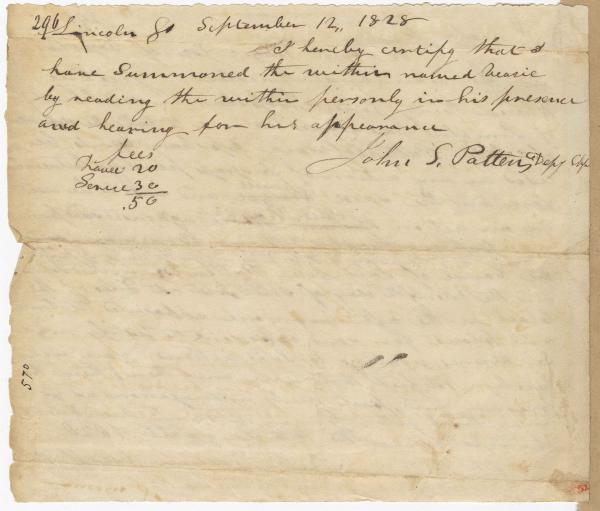 296 Lincoln Ss September 12, 1828
I hereby certify that I
have Summoned the within named Veasie
by reading the within personly in his presence
and hearing for his appearance
fees
Travel 20
Service 30
.50
John S. Patten Depy Shff
570